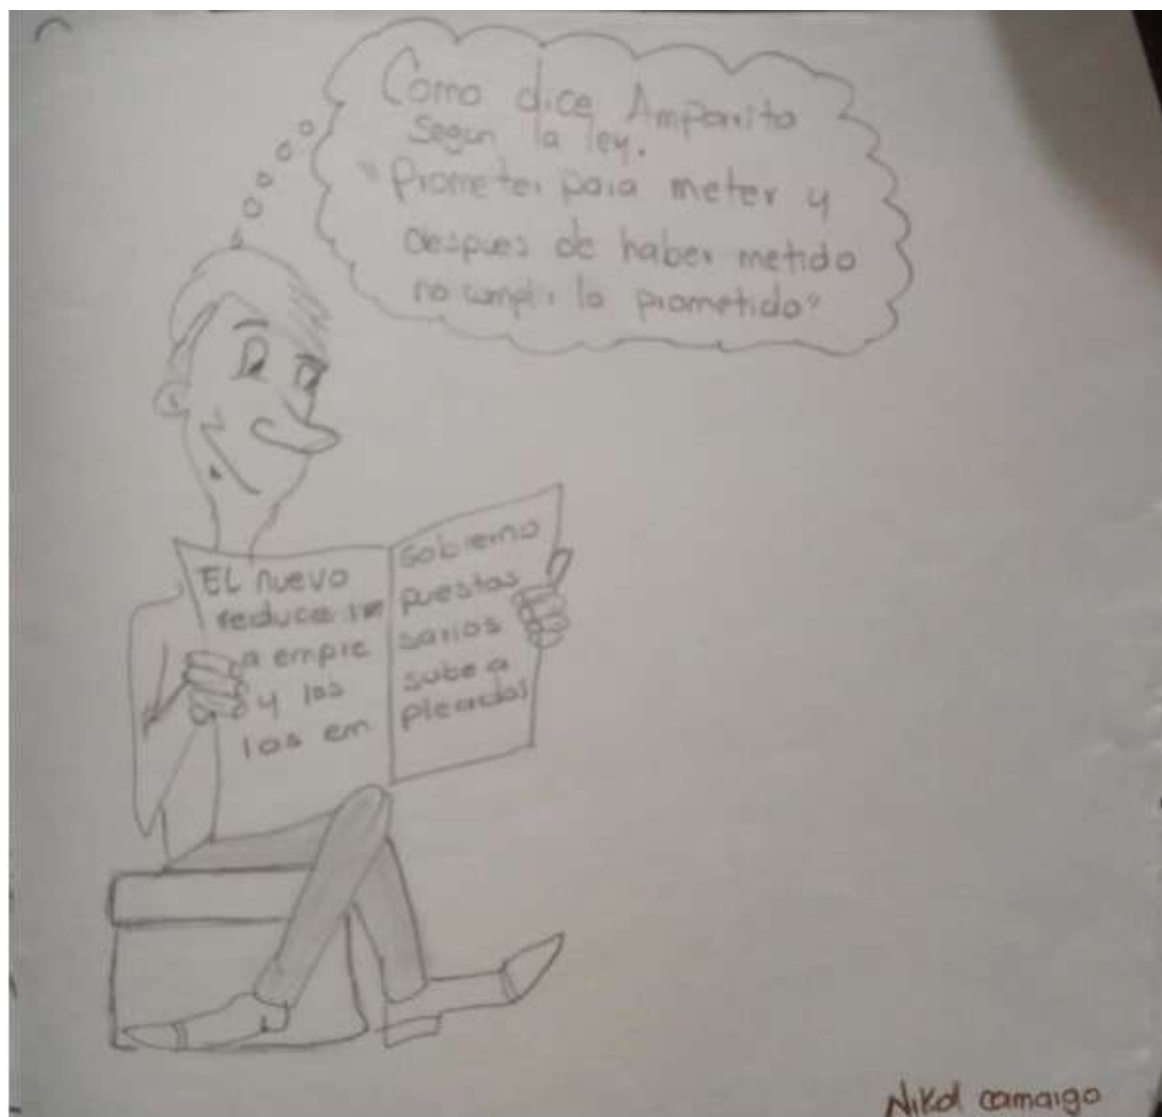 Como dice Amparito
Segun la ley.
"Prometer para meter y
despues de haber metido
no cumplir lo prometido"
EL nuevo
reduce im
a empre
y los
los em
Gobierno
puestos
sarios
sube a
pleados
Nikol camargo